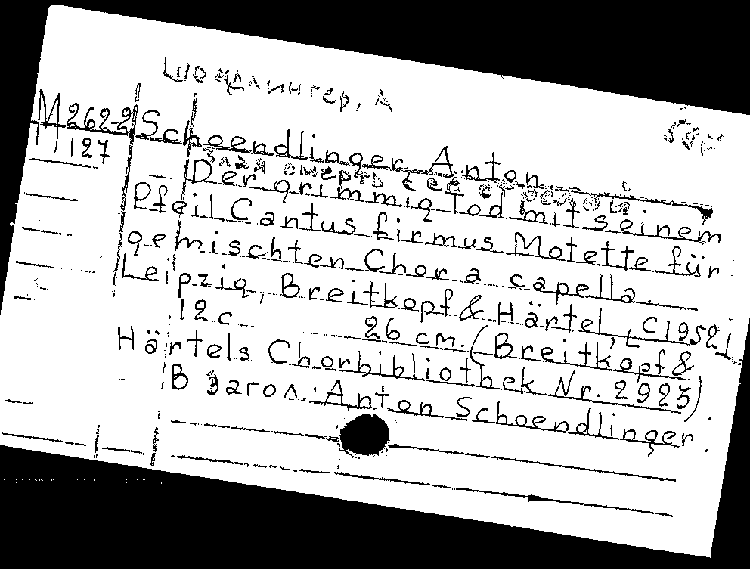 Шоэдлингер, А
М2622 Schoendlinger, Anton
127
Der grimmig Tod mit seinem
Pfeil Cantus firmus Motette für
gemischten Chor a capella.
Leipzig, Breitkopf & Härtel, [c1952]
12 с. 26 cm. (Breitkopf &
Härtels Chorbibliothek Nr. 2925).
В загол.: Anton Schoendlinger.